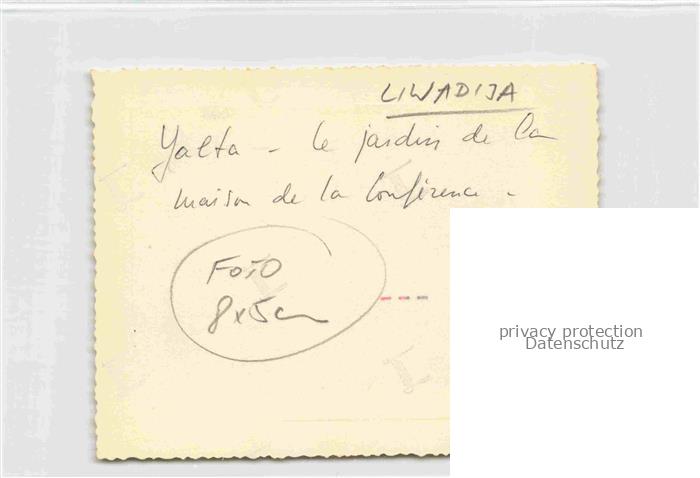 LIWADIJA
Yalta - le jardin de la
maison de la Conférence -
FOTO
8x5cm
privacy protection
Datenschutz